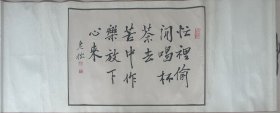 忙裡偷
閒喝杯
茶去
苦中作
樂放下
心來